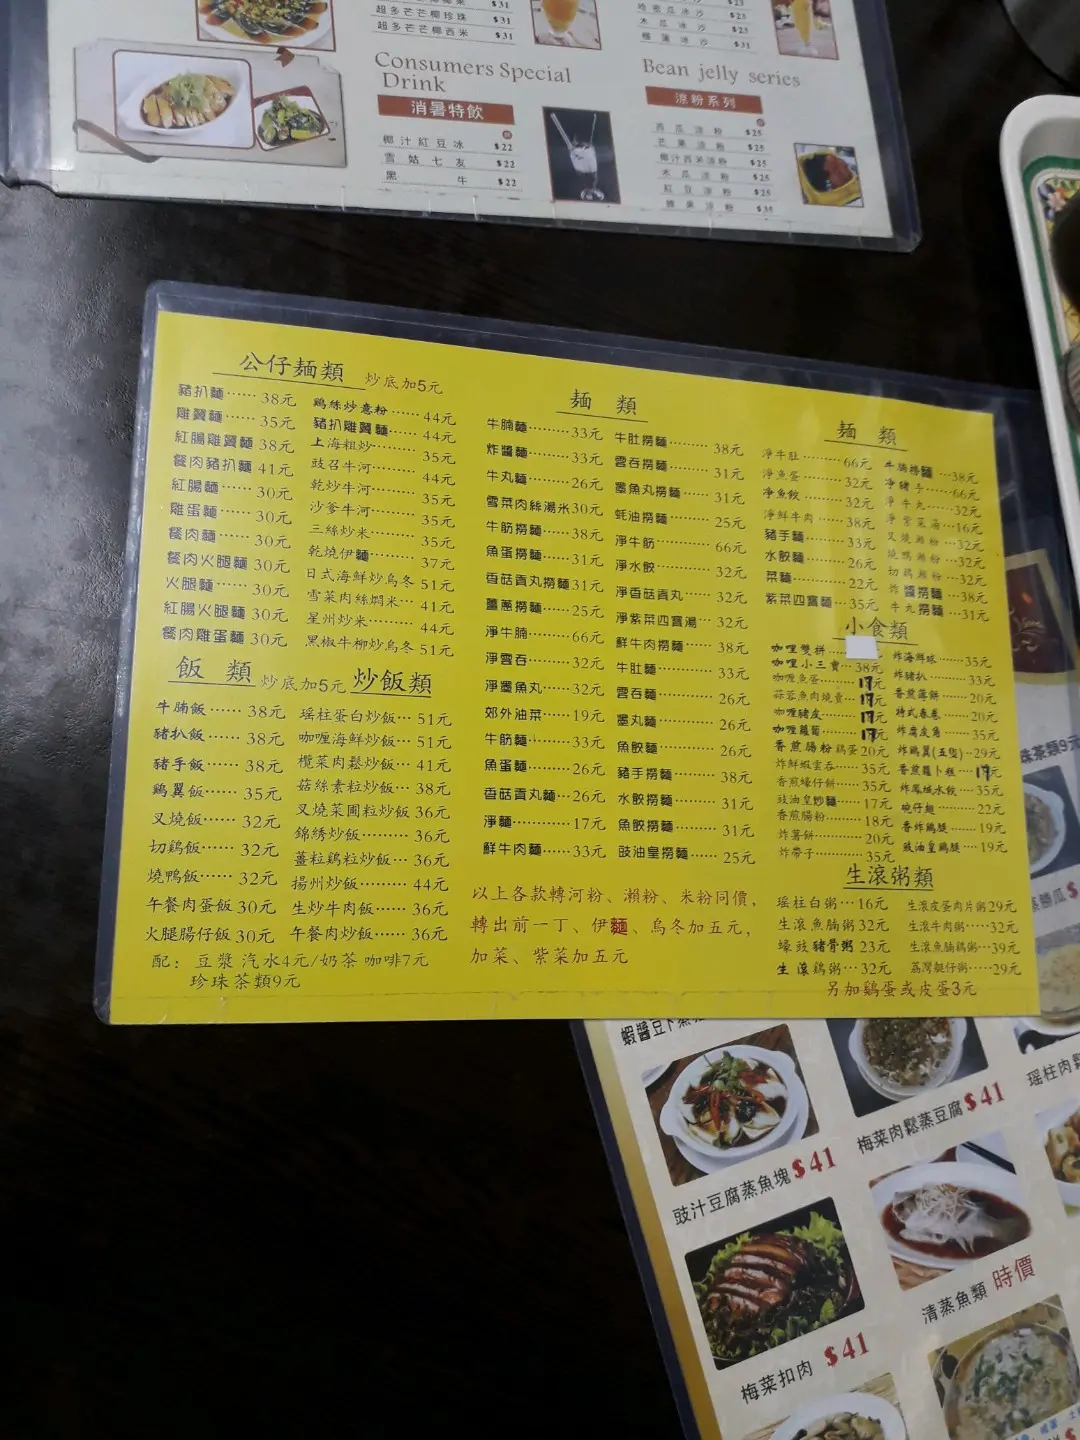 超多芒芒椰珍珠 $31
超多芒芒椰西米 $31
Consumers Special
Drink
消暑特飲
椰汁紅豆冰 $22
雪姑七友 $22
黑牛 $22
木瓜冰沙
$31
Bean jelly series
涼粉系列
西瓜涼粉 $25
芒果涼粉 $25
椰汁西米涼粉 $25
木瓜涼粉 $25
紅豆涼粉 $25
公仔麵類 炒底加5元
豬扒麵……38元
雞翼麵……35元
紅腸雞翼麵 38元
餐肉豬扒麵 41元
紅腸麵……30元
雞蛋麵……30元
餐肉麵……30元
餐肉火腿麵 30元
火腿麵……30元
紅腸火腿麵 30元
餐肉雞蛋麵 30元
鷄絲炒意粉……44元
豬扒雞翼麵……44元
上海粗炒……35元
豉召牛河……44元
乾炒牛河……35元
沙爹牛河……35元
三絲炒米……35元
乾燒伊麵……37元
日式海鮮炒烏冬 51元
雪菜肉絲燜米…41元
星州炒米……44元
黑椒牛柳炒烏冬 51元
飯類 炒底加5元
牛腩飯……38元
豬扒飯……38元
豬手飯……38元
鷄翼飯……35元
叉燒飯……32元
切鷄飯……32元
燒鴨飯……32元
午餐肉蛋飯 30元
火腿腸仔飯 30元
炒飯類
瑤柱蛋白炒飯…51元
咖喱海鮮炒飯…51元
欖菜肉鬆炒飯…41元
菇絲素粒炒飯…38元
叉燒菜圃粒炒飯 36元
錦綉炒飯………36元
薑粒鷄粒炒飯…36元
揚州炒飯………44元
生炒牛肉飯……36元
午餐肉炒飯……36元
配：豆漿 汽水4元/奶茶 咖啡7元
珍珠茶類9元
麵類
牛腩麵……33元
炸醬麵……33元
牛丸麵……26元
雪菜肉絲湯米30元
牛筋撈麵……38元
魚蛋撈麵……31元
香菇貢丸撈麵31元
薑蔥撈麵……25元
淨牛腩……66元
淨雲吞……32元
淨墨魚丸……32元
郊外油菜……19元
牛筋麵……33元
魚蛋麵……26元
香菇貢丸麵…26元
淨麵………17元
鮮牛肉麵……33元
牛肚撈麵………38元
雲吞撈麵………31元
墨魚丸撈麵……31元
蚝油撈麵………25元
淨牛筋………66元
淨水餃………32元
淨香菇貢丸……32元
淨紫菜四寶湯…32元
鮮牛肉撈麵……38元
牛肚麵………33元
雲吞麵………26元
墨丸麵………26元
魚餃麵………26元
豬手撈麵………38元
水餃撈麵………31元
魚餃撈麵………31元
豉油皇撈麵……25元
以上各款轉河粉、瀨粉、米粉同價，
轉出前一丁、伊麵、烏冬加五元，
加菜、紫菜加五元
麵類
淨牛肚………66元
淨魚蛋………32元
淨魚餃………32元
淨鮮牛肉……38元
豬手麵……33元
水餃麵……26元
菜麵………22元
紫菜四寶麵…35元
牛腩撈麵…38元
淨豬手……66元
淨牛丸……32元
淨常菜湯…16元
叉燒瀨粉…32元
燒鴨瀨粉…32元
切鷄瀨粉…32元
炸醬撈麵…38元
牛丸撈麵…31元
小食類
咖哩雙拼……
咖哩小三寶…38元
咖喱魚蛋……17元
蒜蓉魚肉燒賣…17元
咖喱豬皮……17元
咖喱蘿蔔……17元
香煎腸粉雞蛋20元
炸鮮蝦雲吞……35元
香煎蠔仔餅……35元
豉油皇炒麵……17元
香煎腸粉………18元
炸薯餅………20元
炸帶子………35元
炸海鮮球……35元
炸豬扒………33元
香煎薄餅……20元
特式春卷……20元
炸腐皮角……35元
炸鷄翼(五隻)…29元
香煎蘿卜糕…17元
炸鳳城水餃…35元
碗仔翅……22元
香炸鷄腿……19元
豉油皇鷄腿…19元
生滾粥類
瑤柱白粥…16元
生滾魚腩粥32元
蠔豉豬骨粥 23元
生滾鷄粥…32元
生滾皮蛋肉片粥29元
生滾牛肉粥……32元
生滾魚腩鷄粥…39元
荔灣艇仔粥……29元
另加鷄蛋或皮蛋3元
珠茶類9元
豉汁豆腐蒸魚塊 $41
梅菜肉鬆蒸豆腐 $41
梅菜扣肉 $41
清蒸魚類 時價